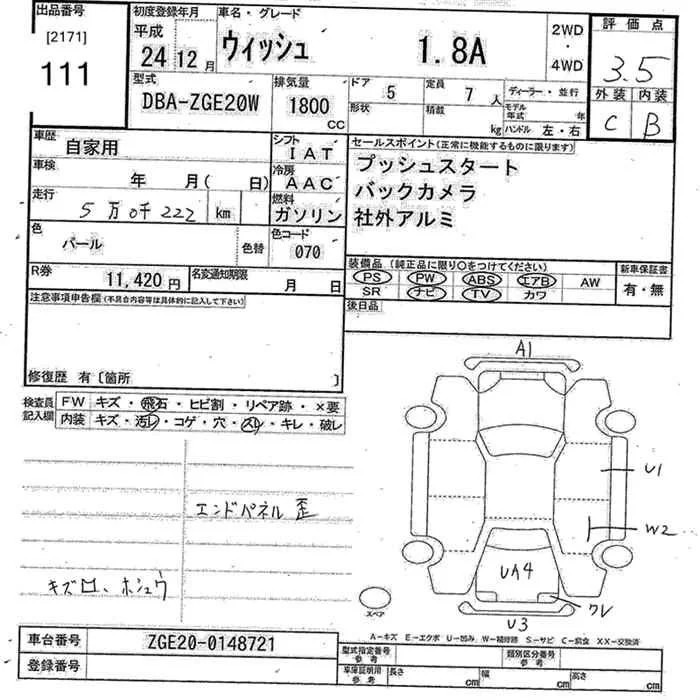 出品番号
[2171]
111
初度登録年月
平成
24 12月
車名・グレード
ウィッシュ 1.8A
2WD
・
4WD
評価点
3.5
外装 内装
C B
型式
DBA-ZGE20W
排気量
1800
CC
ドア 5
定員 7人
ディーラー・並行
形状
積載 kg
モデル年式 年
ハンドル 左・右
車歴
自家用
シフト
IAT
車検
年 月( 日)
冷房
AAC
走行
5万0千222 km
燃料
ガソリン
色
パール
色替
色コード
070
R券
11,420円
名変通知期限
月 日
セールスポイント(正常に機能するものに限ります)
プッシュスタート
バックカメラ
社外アルミ
装備品(純正品に限り〇をつけてください)
PS PW ABS エアB AW
SR ナビ TV カワ
新車保証書
有・無
後日品
注意事項申告欄(不具合内容等は具体的に記入して下さい)
修復歴 有〔箇所 〕
検査員
記入欄
FW キズ・飛石・ヒビ割・リペア跡・×要
内装 キズ・汚レ・コゲ・穴・スレ・キレ・破レ
エンドパネル歪
キズロ、ホシュウ
A1
U1
W2
UA4
ワレ
U3
スペア
A-キズ E-エクボ U-凹み W-補修跡 S-サビ C-腐食 XX-交換済
車台番号
ZGE20-0148721
登録番号
型式指定番号
参考
類別区分番号
参考
車庫証明用
参考
長さ cm
幅 cm
高さ cm